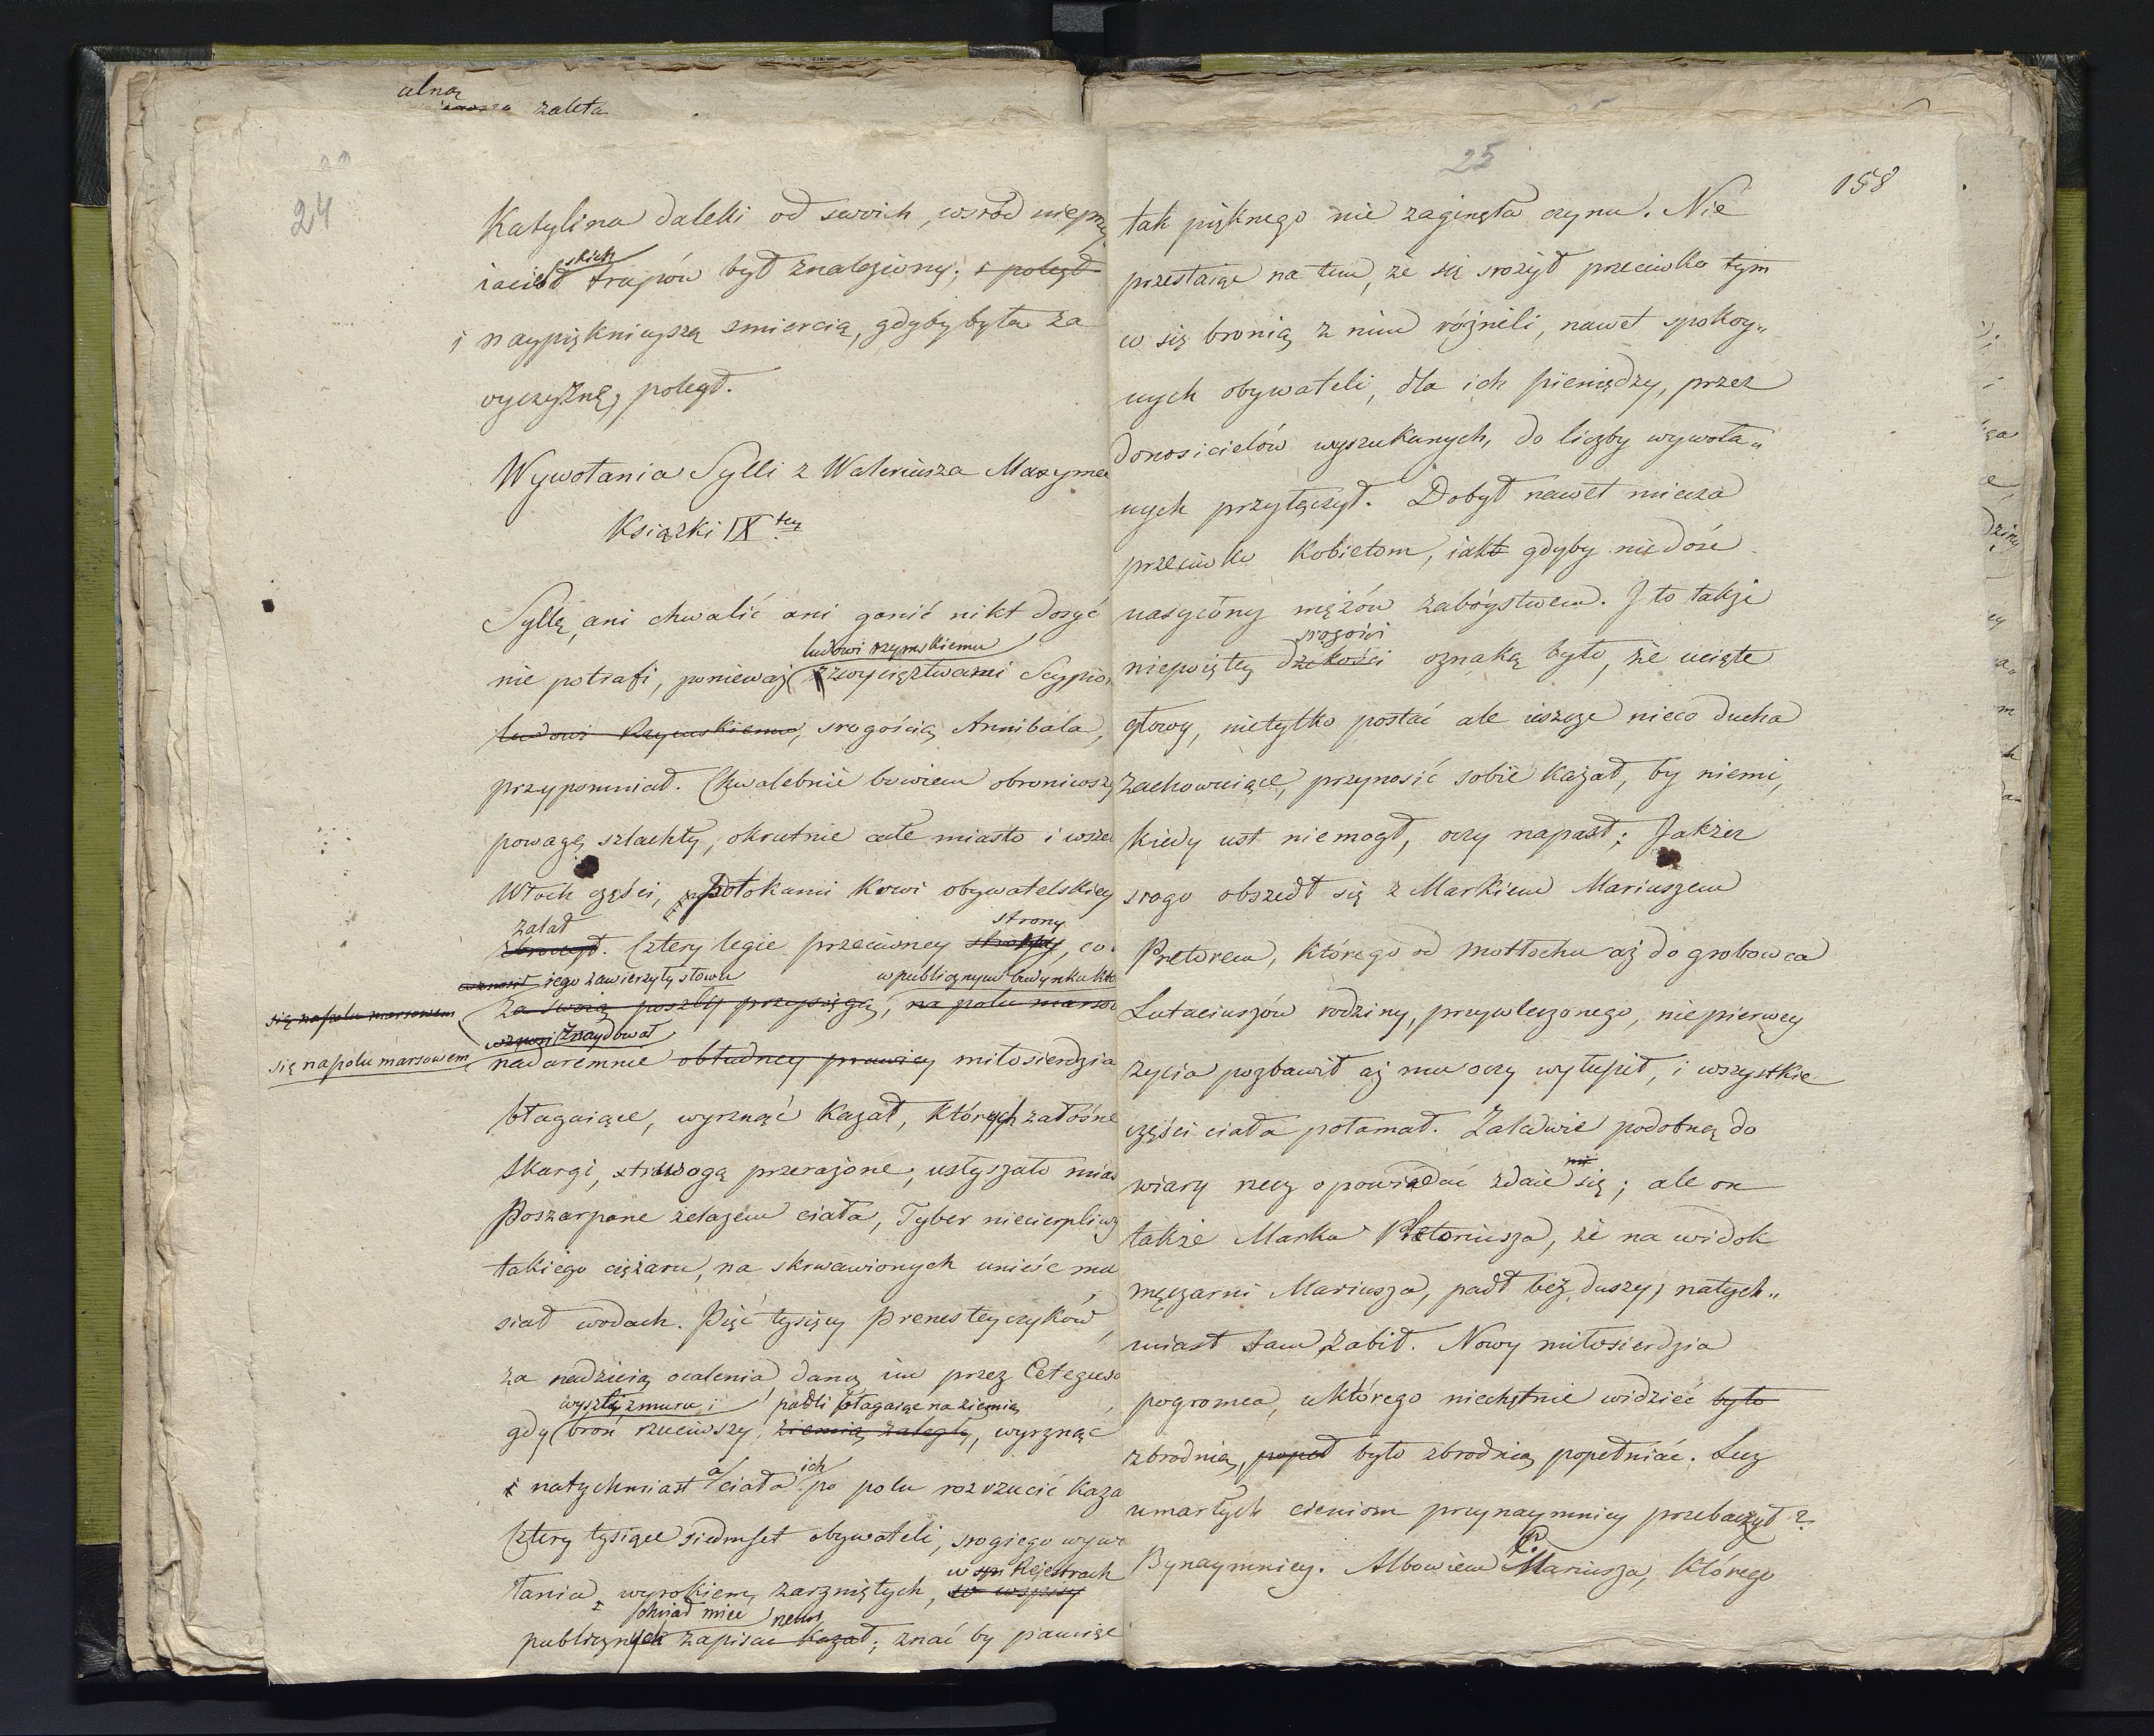 ulną
zaleta
24
Katylina daleki od swoich, wsród nieprzy
iaciół skich trupów był znaleziony; i poległ
i naypiękniejszą smiercią, gdyby była za
oyczyznę, poległ.
Wywołania Sylli z Waleriusza Maxyma
Książki IX tey
Syllę, ani chwalić ani ganić nikt dosyć
ludowi rzymskiemu
nie potrafi, ponieważ zwycięztwami Scypio
ludowi Rzymskiemu, srogością Annibala,
przypomniał. Chwalebnie bowiem obroniwszy
powagę szlachty, okrutnie całe miasto i wsze
Włoch części, potokami krwi obywatelskiey
zalał strony
zbroczył. Cztery legie przeciwney strony, co
iego zawierzyły słowu w publicznym budynku któ
się na polu marsowem za swoią poszły przysięgą, na polu marso
znaydował
się na polu marsowem nadaremnie obłudney prawicy miłosierdzia
błagaiące, wyrznąć kazał, których żałośne
skargi, trwogą przerażone, usłyszało mias
Poszarpane żelazem ciała, Tyber niecierpliwy
takiego ciężaru, na skrwawionych unieść mu
siał wodach. Pięć tysięcy Prenesteyczyków,
za nadzieią ocalenia, daną im przez Cetegusa
wyszli z muru, i padli błagaiąc na ziemię
gdy broń rzuciwszy, ziemią zaległy, wyrznąć
i natychmiast a ciała ich po polu rozrzucić kaza
Cztery tysiące siedmset obywateli, srogiego wywo
w Rejestrach
łania wyrokiem, zarzniętych,
chciał mieć
publicznych zapisać kazał; znać by pamięć
25
158
tak pięknego nie zaginęła czynu. Nie
przestaiąc na tem, że się srożył przeciwko tym
co się bronią z nim różnili, nawet spokoy„
nych obywateli, dla ich pieniędzy, przez
donosicielów wyszukanych, do liczby wywoła„
nych przyłączył. Dobył nawet miecza
przeciwko kobietom, iakt gdyby niedość
nasycony mężów zabóystwem. I to także
srogości
niepoiętey dzikości oznaką było, że ucięte
głowy, nietylko postać ale ieszcze nieco ducha
zachowuiące, przynosić sobie kazał, by niemi,
kiedy ust niemogł, oczy napasł; Jakżez
srogo obszedł się z Markiem Mariuszem
Pretorem, którego od motłochu aż do grobowca
Lutaciuszów rodziny, przywleczonego, niepierwey
życia pozbawił aż mu oczy wyłupił, i wszystkie
części ciała połamał. Zaledwie podobną do
wiary rzecz opowiadać zdaie się; ale on
także Marka Pletoriusza, że na widok
męczarni Mariusza, padł bez duszy, natych„
miast tam zabił. Nowy miłosierdzia
pogromca, u którego niechętnie widzieć było
zbrodnią, popeł było zbrodnią popełniać. Lecz
umarłych cieniom przynaymniey przebaczył?
Bynaymniey. Albowiem C. Mariusza, którego